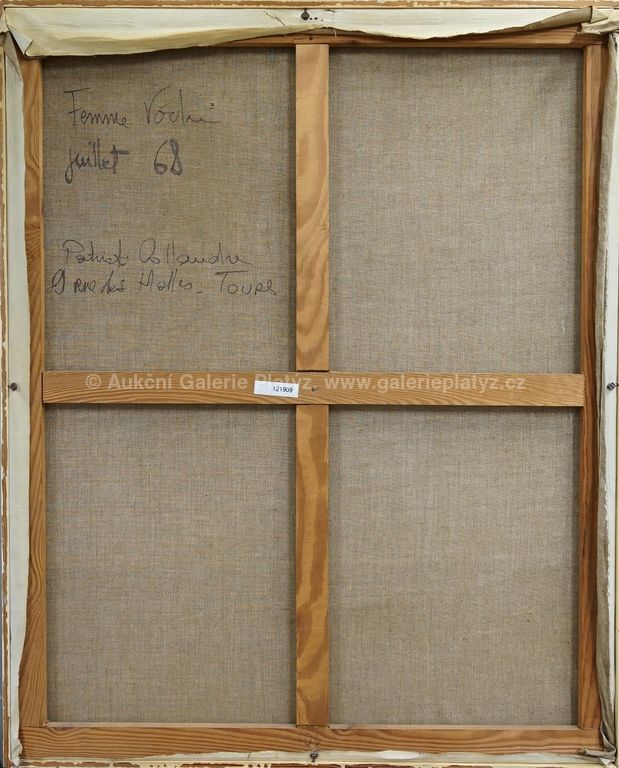 Femme
juillet 68
Patrick
9 rue des Halles - TOURS
© Aukční Galerie Platýz, www.galerieplatyz.cz
121909